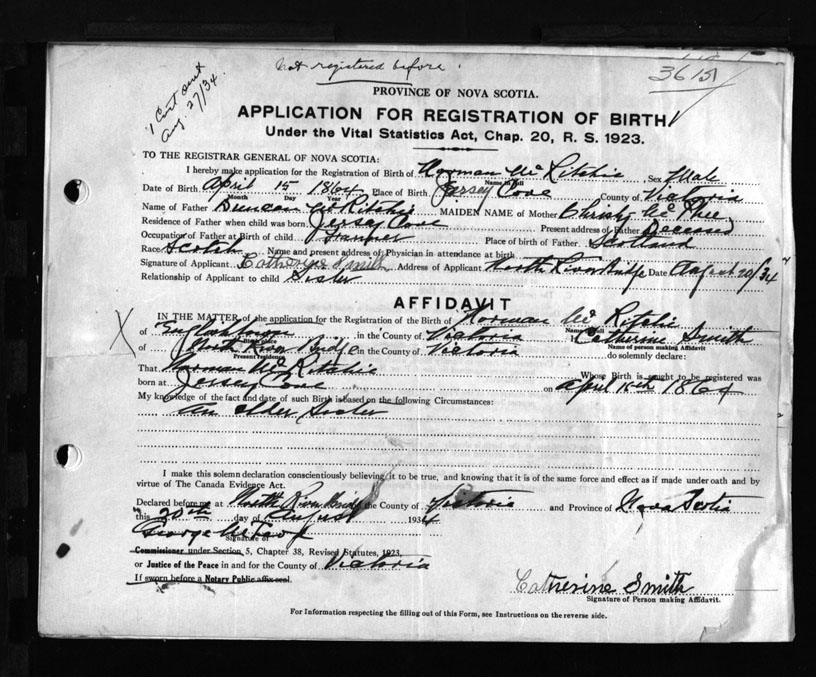 Not registered before
36151
1 Cert sent
Aug. 27/34.
PROVINCE OF NOVA SCOTIA.
APPLICATION FOR REGISTRATION OF BIRTH
Under the Vital Statistics Act, Chap. 20, R. S. 1923.
TO THE REGISTRAR GENERAL OF NOVA SCOTIA:
I hereby make application for the Registration of Birth of Norman Mc Ritchie Sex Male
Name in full
Date of Birth April 15 1864 Place of Birth Jersey Cove County of Victoria
Month Day Year
Name of Father Duncan Mc Ritchie MAIDEN NAME of Mother Christy Mc Phee
Residence of Father when child was born Jersey Cove Present address of Father Deceased
Occupation of Father at Birth of child Farmer Place of Birth of Father Scotland
Race Scotch Name and present address of Physician in attendance at birth
Signature of Applicant Catherine Smith Address of Applicant North River Bridge Date August 20/34
Relationship of Applicant to child Sister
AFFIDAVIT
IN THE MATTER of the application for the Registration of the Birth of Norman Mc Ritchie
X of Englishtown in the County of Victoria I Catherine Smith
Birth place Name of person making Affidavit
of North River Bridge in the County of Victoria do solemnly declare:
Present residence
That Norman Mc Ritchie Whose Birth is sought to be registered was
born at Jersey Cove on April 15th 1864
My knowledge of the fact and date of such Birth is based on the following Circumstances:
An elder Sister
I make this solemn declaration conscientiously believing it to be true, and knowing that it is of the same force and effect as if made under oath and by
virtue of The Canada Evidence Act.
Declared before me at North River Bridge the County of Victoria and Province of Nova Scotia
this 20th day of August 1934
George
Signature of
Commissioner under Section 5, Chapter 38, Revised Statutes, 1923,
or Justice of the Peace in and for the County of Victoria
If sworn before a Notary Public affix seal.
Catherine Smith
Signature of Person making Affidavit.
For Information respecting the filling out of this Form, see Instructions on the reverse side.